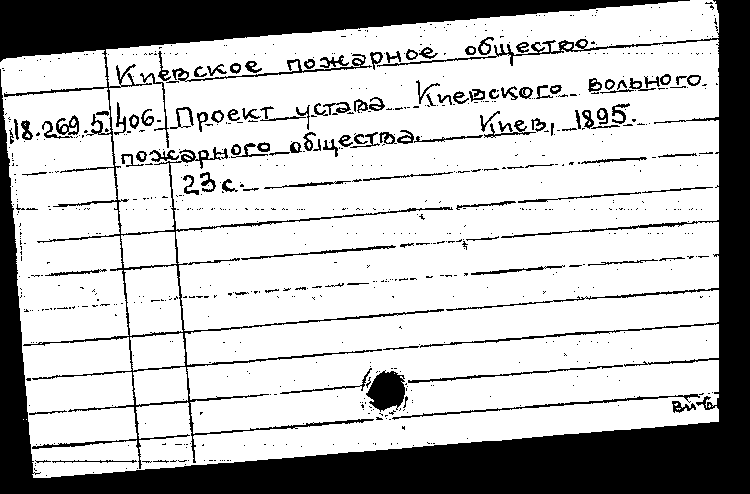 Киевское пожарное общество.
18.269.5.406. Проект устава Киевского вольного
пожарного общества. Киев, 1895.
23 с.